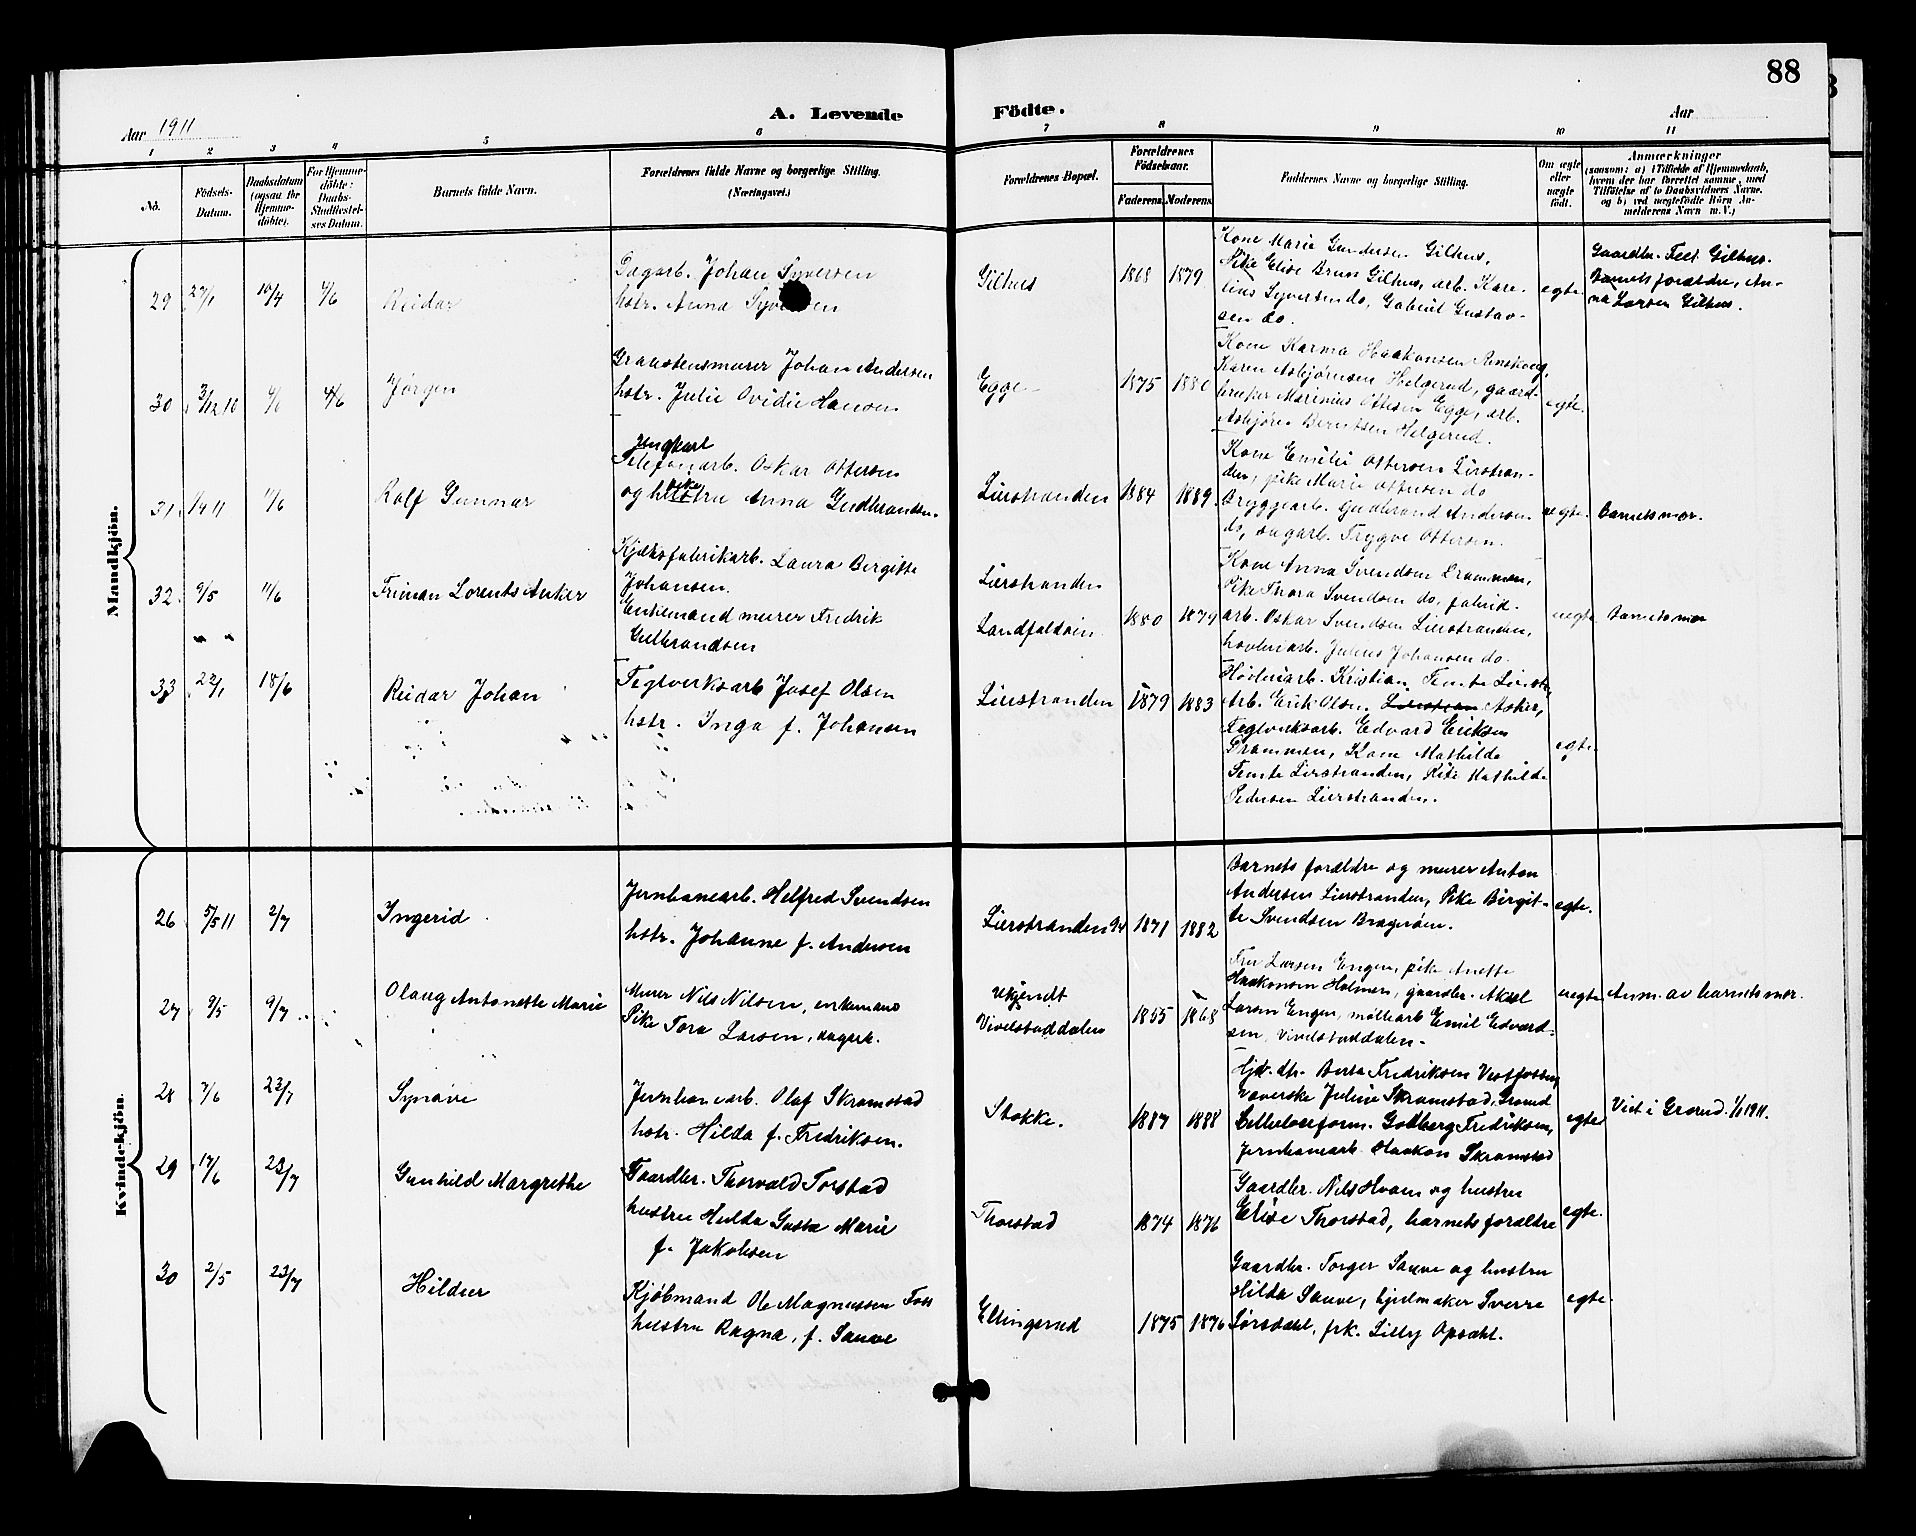 88
Aar 1911
A. Levende Födte.
Aar
1 2 3 4 5 6 7 8 9 10 11
No.
Födsels-Datum.
Daabsdatum (ogsaa for Hjemmedöbte).
For Hjemmedöbte: Daabs-Stadfæstelses Datum.
Barnets fulde Navn.
Forældrenes fulde Navne og borgerlige Stilling. (Næringsvei.)
Forældrenes Bopæl.
Forældrenes Födselsaar.
Faderens. Moderens.
Faddernes Navne og borgerlige Stilling.
Om ægte eller uægte födt.
Anmærkninger
Mandkjön.
29 27/1 16/4 4/6 Reidar
Dagarb. Johan Syversen
hstr. Anna Syversen
Gilhus 1868 1879
Kone Marie Gundersen Gilhus,
Pike Elise Bruun Gilhus, arb. Kare-
lius Syversen do, Gabriel Gustav-
sen do.
egte.
Gaardbr. Feet Gilhus.
Barnets forældre, An-
na Larsen Gilhus.
30 3/12 10 4/6 Jørgen
Graastensmurer Johan Andersen
hstr. Julie Ovidie Hansen
Egge 1875 1880
Kone Karma Haakonsen Renskoug,
Karen Asbjørnsen Helgerud, gaard-
bruker Marinius Ottesen Egge, arb.
Asbjørn Berntsen Helgerud.
egte.
31 1/4 11 11/6 Rolf Gunnar
ungkarl
Telefonarb. Oskar Ottersen
og hustru pike Anna Gudbrandsen.
Lierstranden 1884 1889
Kone Emilie Ottersen Lierstran-
den, pike Marie Ottersen do
Bryggearb. Gudbrand Andersen
do, sagarb. Trygve Ottersen.
uegte. Barnets mor.
32 9/5 11/6 Friman Lorents Anker
Kjæksfabrikarb. Laura Birgitte
Johansen.
Enkemand murer Fredrik
Gulbrandsen
Lierstranden
Landfaldøien
1880 1879
Kone Anna Svendsen Drammen,
Pike Thora Svendsen do, fabrik-
arb. Oskar Svendsen Lierstranden,
høvleriarb. Julius Johansen do.
uegte Barnets mor
33 22/1 18/6 Reidar Johan
Teglverksarb Josef Olsen
hstr. Inga f. Johansen
Lierstranden 1879 1883
Høvleriarb. Kristian Temte Lierstr.
Arb. Erik Olsen. Lierstran Asker,
Teglverksarb. Edvard Eriksen
Drammen, Kone Mathilde
Temte Lierstranden, Pike Mathilde
Pedersen Lierstranden.
egte.
Kvindekjön.
26 5/5 11 2/7 Ingerid
Jernbanearb. Helfred Svendsen
hstr. Johanne f. Andersen
Lierstranden 94 1871 1882
Barnets forældre og murer Anton
Andersen Lierstranden, Pike Birgit-
te Svendsen Bragerøen.
egte.
27 9/5 9/7 Olaug Antonette Marie
Murer Nils Nilsen, enkemand
Pike Tora Larsen, dagarb.
ukjendt
Vivelstaddalen
1855 1868
Fru Larsen Engen, pike Anette
Haakonsen Holmen, gaardbr. Aksel
Larsen Engen, møllearb Emil Edvard-
sen, Vivelstaddalen.
uegte Anm. av barnets mor.
28 7/6 23/7 Synøve
Jernbanearb. Olaf Skramstad
hstr. Hilda f. Fredriksen.
Stokke. 1887 1888
Gdr. dtr. Berta Fredriksen Vestfossen,
væverske Juline Skramstad, Grorud
Celluloseform. Godberg Fredriksen,
Jernbanearb. Haakon Skramstad
egte Viet i Grorud. 1/1 1911.
29 17/6 23/7 Gunhild Margrethe
Gaardbr. Thorvald Torstad
hustru Hulda Gusta Marie
f. Jakobsen
Thorstad 1874 1876
Gaardbr. Nils Hvam og hustru
Elise Thorstad, barnets forældre
egte.
30 2/5 23/7 Hildur
Kjøbmand Ole Magnussen Foss
hustru Ragna, f. Sauve
Eltingerud 1875 1876
Gaardbr. Torger Sauve og hustru
Hilda Sauve, hjulmaker Sverre
Sørsdahl, frk. Lilly Opsahl.
egte.